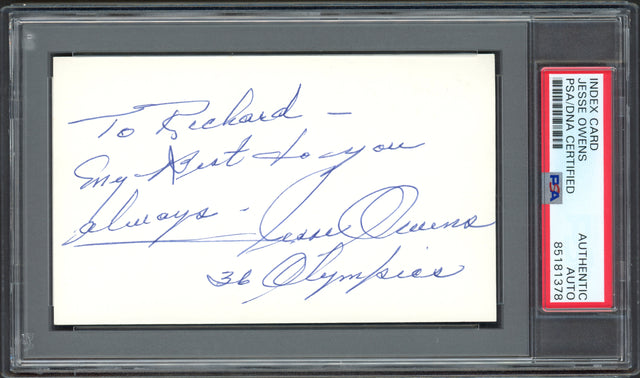 To Richard -
My Best to you
always - Jesse Owens
36 Olympics
INDEX CARD
JESSE OWENS
PSA/DNA CERTIFIED
PSA
AUTHENTIC
AUTO
85181378